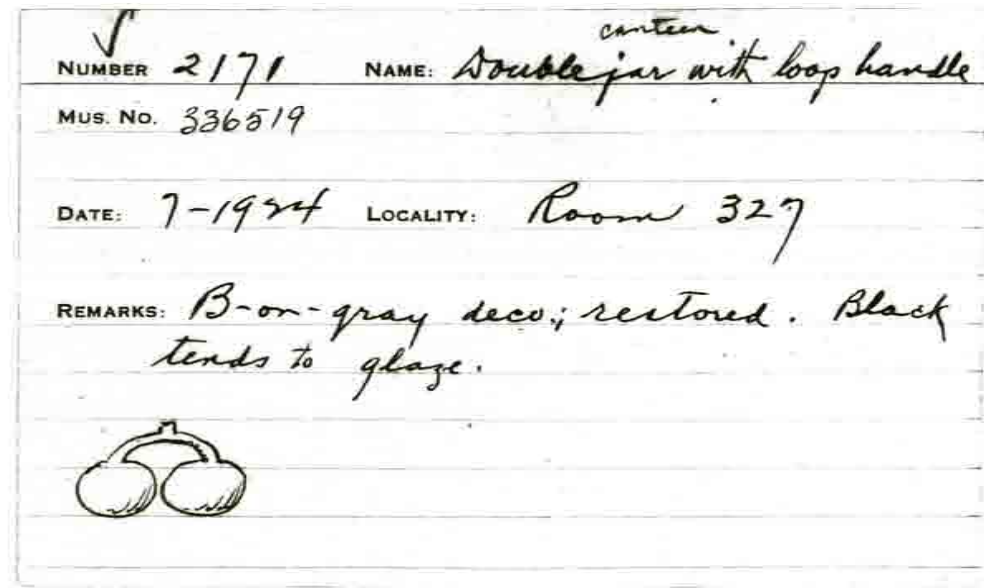 canteen
NUMBER 2171 NAME: Double jar with loop handle
MUS. NO. 336519
DATE: 7-1924 LOCALITY: Room 327
REMARKS: B-on-gray deco.; restored. Black
tends to glaze.